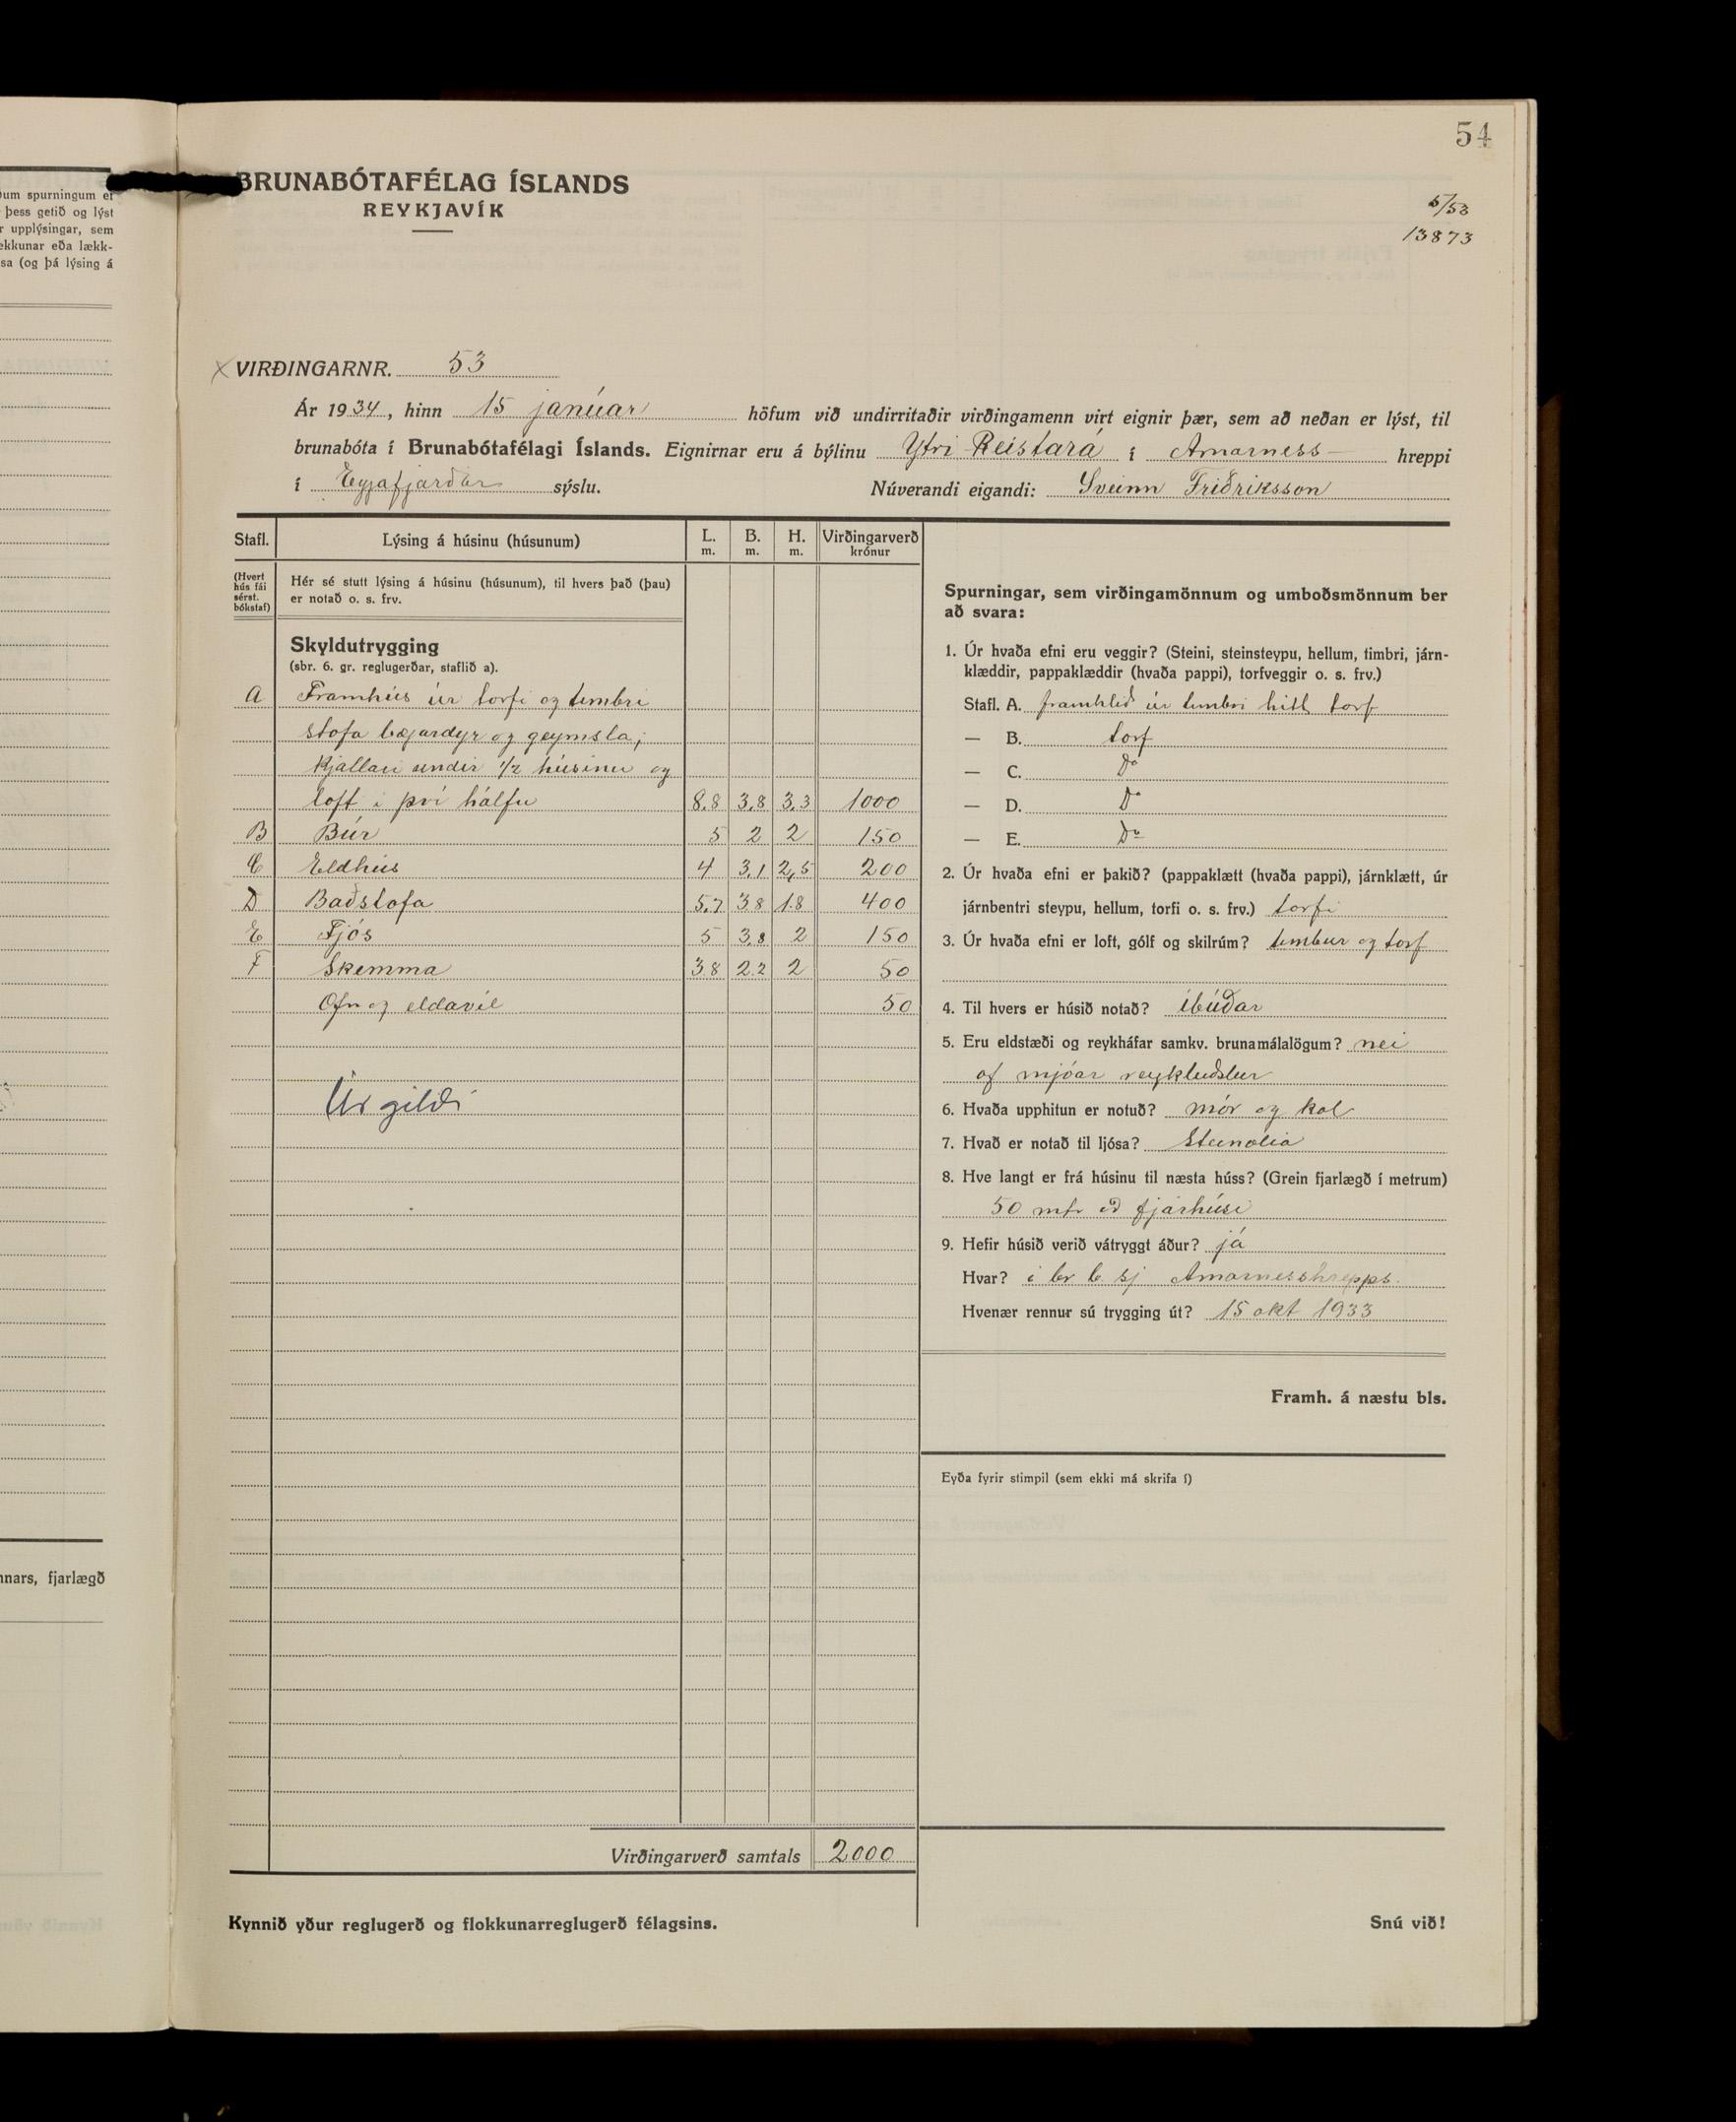 54
5/53
13873
ðum spurningum ef
þess getið og lýst
r upplýsingar, sem
ekkunar eða lækk-
sa (og þá lýsing á
nnars, fjarlægð
BRUNABÓTAFÉLAG ÍSLANDS
REYKJAVÍK
VIRÐINGARNR. 53
Ár 1934, hinn 15 janúar höfum við undirritaðir virðingamenn virt eignir þær, sem að neðan er lýst, til
brunabóta í Brunabótafélagi Íslands. Eignirnar eru á býlinu Ytri Reistará í Arnarness- hreppi
í Eyjafjarðar sýslu. Núverandi eigandi: Sveinn Friðriksson
Stafl. Lýsing á húsinu (húsunum) L. m. B. m. H. m. Virðingarverð krónur
(Hvert hús fái sérst. bókstaf)
Hér sé stutt lýsing á húsinu (húsunum), til hvers það (þau)
er notað o. s. frv.
Skyldutrygging
(sbr. 6. gr. reglugerðar, staflið a).
A Framhús úr torfi og timbri
stofa bæjardyr og geymsla;
kjallari undir 1/2 húsinu og
loft i því hálfu 8.8 3,8 3,3 1000
B Búr 5 2 2 150
C Eldhús 4 3,1 2,5 200
D Baðstofa 5,7 3.8 1.8 400
E Fjós 5 3,8 2 150
F Skemma 3.8 2.2 2 50
Ofn og eldavél 50
Úr gildi
Virðingarverð samtals 2000
Kynnið yður reglugerð og flokkunarreglugerð félagsins.
Spurningar, sem virðingamönnum og umboðsmönnum ber
að svara:
1. Úr hvaða efni eru veggir? (Steini, steinsteypu, hellum, timbri, járn-
klæddir, pappaklæddir (hvaða pappi), torfveggir o. s. frv.)
Stafl. A. framhlið úr timbri hitt torf
— B. torf
— C. Do
— D. Do
— E. Do
2. Úr hvaða efni er þakið? (pappaklætt (hvaða pappi), járnklætt, úr
járnbentri steypu, hellum, torfi o. s. frv.) torfi
3. Úr hvaða efni er loft, gólf og skilrúm? timbur og torf
4. Til hvers er húsið notað? íbúðar
5. Eru eldstæði og reykháfar samkv. brunamálalögum? nei
of mjóar
6. Hvaða upphitun er notuð? mór og kol
7. Hvað er notað til ljósa? Steinolia
8. Hve langt er frá húsinu til næsta húss? (Grein fjarlægð í metrum)
50 mtr að fjárhúsi
9. Hefir húsið verið vátryggt áður? já
Hvar? i br b sj Arnarnesshrepps.
Hvenær rennur sú trygging út? 15 okt 1933
Framh. á næstu bls.
Eyða fyrir stimpil (sem ekki má skrifa í)
Snú við!